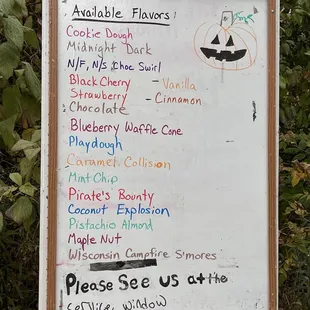 Available Flavors:
Cookie Dough
Midnight Dark
N/F, N/S Choc Swirl
Black Cherry - Vanilla
Strawberry - Cinnamon
Chocolate
Blueberry Waffle Cone
Playdough
Caramel Collision
Mint Chip
Pirate's Bounty
Coconut Explosion
Pistachio Almond
Maple Nut
Wisconsin Campfire S'mores
Please See us at the
service window